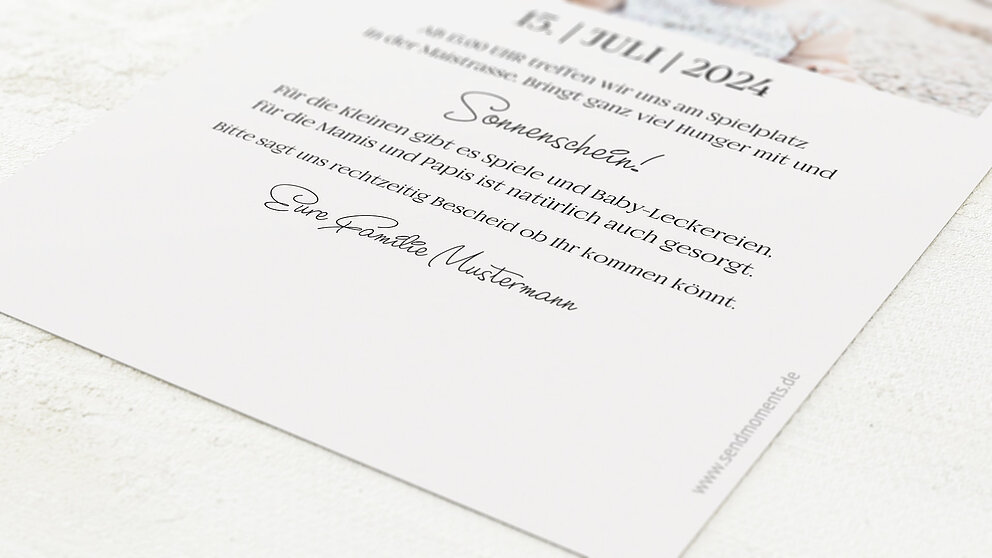 15. | JULI | 2024
AB 15.00 UHR treffen wir uns am Spielplatz
in der Maistrasse. Bringt ganz viel Hunger mit und
Sonnenschein!
Für die Kleinen gibt es Spiele und Baby-Leckereien.
Für die Mamis und Papis ist natürlich auch gesorgt.
Bitte sagt uns rechtzeitig Bescheid ob Ihr kommen könnt.
Eure Familie Mustermann
www.sendmoments.de